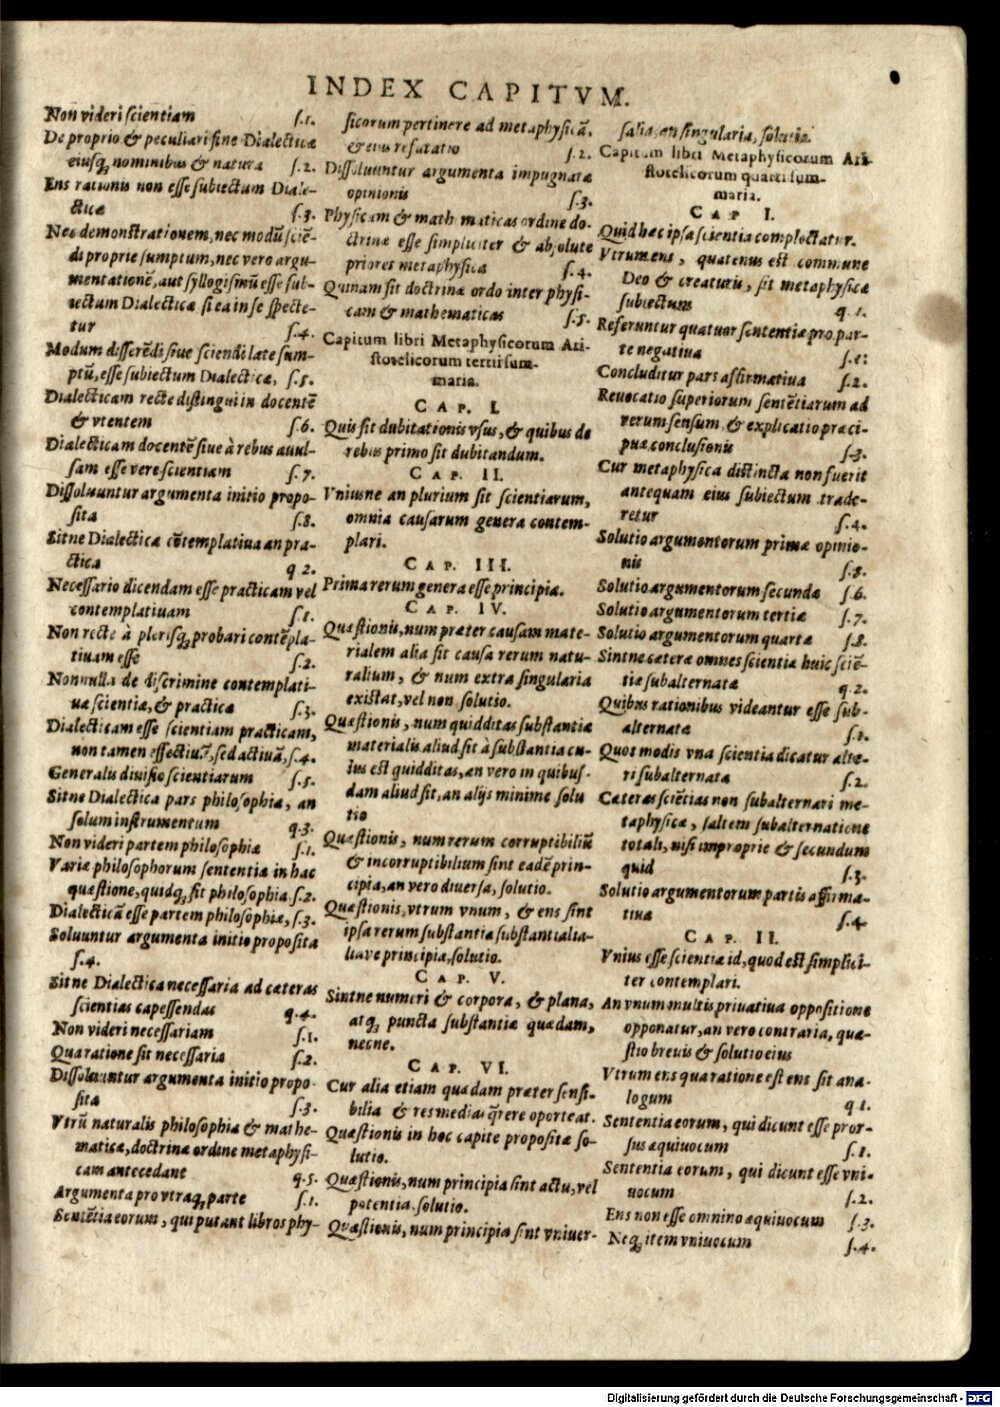 INDEX CAPITVM.
Non videri scientiam ſ.1.
De proprio & peculiari fine Dialecticæ
eiusq́; nominibus & natura ſ.2.
Ens rationis non eſſe ſubiectum Diale-
cticæ ſ.3.
Nec demonſtrationem, nec modũ ſciẽ-
di proprie ſumptum, nec vero argu-
mentationẽ, aut ſyllogiſmũ eſſe ſub-
iectum Dialecticæ ſi ea in ſe ſpecte-
tur ſ.4.
Modum diſſerẽdi ſiue ſciendi late ſum-
ptũ, eſſe ſubiectum Dialecticæ, ſ.5.
Dialecticam recte diſtingui in docentẽ
& vtentem ſ.6.
Dialecticam docentẽ ſiue à rebus auul-
ſam eſſe vere ſcientiam ſ.7.
Diſſoluuntur argumenta initio propo-
ſita ſ.8.
Sitne Dialectica cõtemplatiua an pra-
ctica q 2.
Neceſſario dicendam eſſe practicam vel
contemplatiuam ſ.1.
Non recte à plerisq́; probari contẽpla-
tiuam eſſe ſ.2.
Nonnulla de diſcrimine contemplati-
uæ ſcientiæ, & practicæ ſ.3.
Dialecticam eſſe ſcientiam practicam,
non tamen effectiuã, ſed actiuã, ſ.4.
Generalis diuiſio ſcientiarum ſ.5.
Sitne Dialectica pars philoſophiæ, an
ſolum inſtrumentum q.3.
Non videri partem philoſophiæ ſ.1.
Variæ philoſophorum ſententiæ in hac
quæſtione, quidq́; ſit philoſophia ſ.2.
Dialecticã eſſe partem philoſophiæ, ſ.3.
Soluuntur argumenta initio propoſita
ſ.4.
Sitne Dialectica neceſſaria ad cæteras
ſcientias capeſſendas q.4.
Non videri neceſſariam ſ.1.
Qua ratione ſit neceſſaria ſ.2.
Diſſoluuntur argumenta initio propo-
ſita ſ.3.
Vtrũ naturalis philoſophia & mathe-
maticæ, doctrinæ ordine metaphyſi-
cam antecedant q.5.
Argumenta pro vtraq́; parte ſ.1.
Sentẽtia eorum, qui putant libros phy-
ſicorum pertinere ad metaphyſicã,
& eius refutatio ſ.2.
Diſſoluuntur argumenta impugnatæ
opinionis ſ.3.
Phyſicam & mathematicas ordine do-
ctrinæ eſſe ſimpliciter & abſolute
priores metaphyſica ſ.4.
Quinam ſit doctrinæ ordo inter phyſi-
cam & mathematicas ſ.5.
Capitum libri Metaphyſicorum Ari-
ſtotelicorum tertii ſum-
maria.
CAP. I.
Quis ſit dubitationis vſus, & quibus de
rebus primo ſit dubitandum.
CAP. II.
Vniusne an plurium ſit ſcientiarum,
omnia cauſarum genera contem-
plari.
CAP. III.
Prima rerum genera eſſe principia.
CAP. IV.
Quæſtionis, num præter cauſam mate-
rialem alia ſit cauſa rerum natu-
ralium, & num extra ſingularia
exiſtat, vel non ſolutio.
Quæſtionis, num quidditas ſubſtantiæ
materialis aliud ſit à ſubſtantia cu-
ius eſt quidditas, an vero in quibuſ-
dam aliud ſit, an alijs minime ſolu
tio
Quæſtionis, num rerum corruptibiliũ
& incorruptibilium ſint eadẽ prin-
cipia, an vero diuerſa, ſolutio.
Quæſtionis, vtrum vnum, & ens ſint
ipſa rerum ſubſtantia ſubſtantialia-
liave principia, ſolutio.
CAP. V.
Sintne numeri & corpora, & plana,
atq́; puncta ſubſtantiæ quædam,
necne.
CAP. VI.
Cur alia etiam quædam præter ſenſi-
bilia & res medias q̃rere oporteat.
Quæſtionis in hoc capite propoſitæ ſo-
lutio.
Quæſtionis, num principia ſint actu, vel
potentia, ſolutio.
Quæſtionis, num principia ſint vniuer-
ſalia, an ſingularia, ſolutio.
Capitum libri Metaphyſicorum Ari-
ſtotelicorum quarti ſum-
maria.
CAP I.
Quid hæc ipſa ſcientia complectatur.
Vtrum ens, quatenus eſt commune
Deo & creaturis, ſit metaphyſicæ
ſubiectum q.1.
Referuntur quatuor ſententiæ pro par-
te negatiua ſ.1.
Concluditur pars affirmatiua ſ.2.
Reuocatio ſuperiorum ſentẽtiarum ad
verum ſenſum, & explicatio præci-
puæ concluſionis ſ.3.
Cur metaphyſica diſtincta non fuerit
antequam eius ſubiectum trade-
retur ſ.4.
Solutio argumentorum primæ opinio-
nis ſ.5.
Solutio argumentorum ſecundæ ſ.6.
Solutio argumentorum tertiæ ſ.7.
Solutio argumentorum quartæ ſ.8.
Sintne cæteræ omnes ſcientiæ huic ſciẽ-
tiæ ſubalternatæ q.2.
Quibus rationibus videantur eſſe ſub-
alternatæ ſ.1.
Quot modis vna ſcientia dicatur alte-
ri ſubalternata ſ.2.
Cæteras ſciẽtias non ſubalternari me-
taphyſicæ, ſaltem ſubalternatione
totali, niſi improprie & ſecundum
quid ſ.3.
Solutio argumentorum partis affirma-
tiuæ ſ.4.
CAP. II.
Vnius eſſe ſcientiæ id, quod eſt ſimplici-
ter contemplari.
An vnum multis priuatiua oppoſitione
opponatur, an vero contraria, quæ-
ſtio breuis & ſolutio eius
Vtrum ens qua ratione eſt ens ſit ana-
logum q 1.
Sententia eorum, qui dicunt eſſe pror-
ſus æquiuocum ſ.1.
Sententia eorum, qui dicunt eſſe vni-
uocum ſ.2.
Ens non eſſe omnino æquiuocum ſ.3.
Neq́; item vniuocum ſ.4.
Digitalisierung gefördert durch die Deutsche Forschungsgemeinschaft - DFG